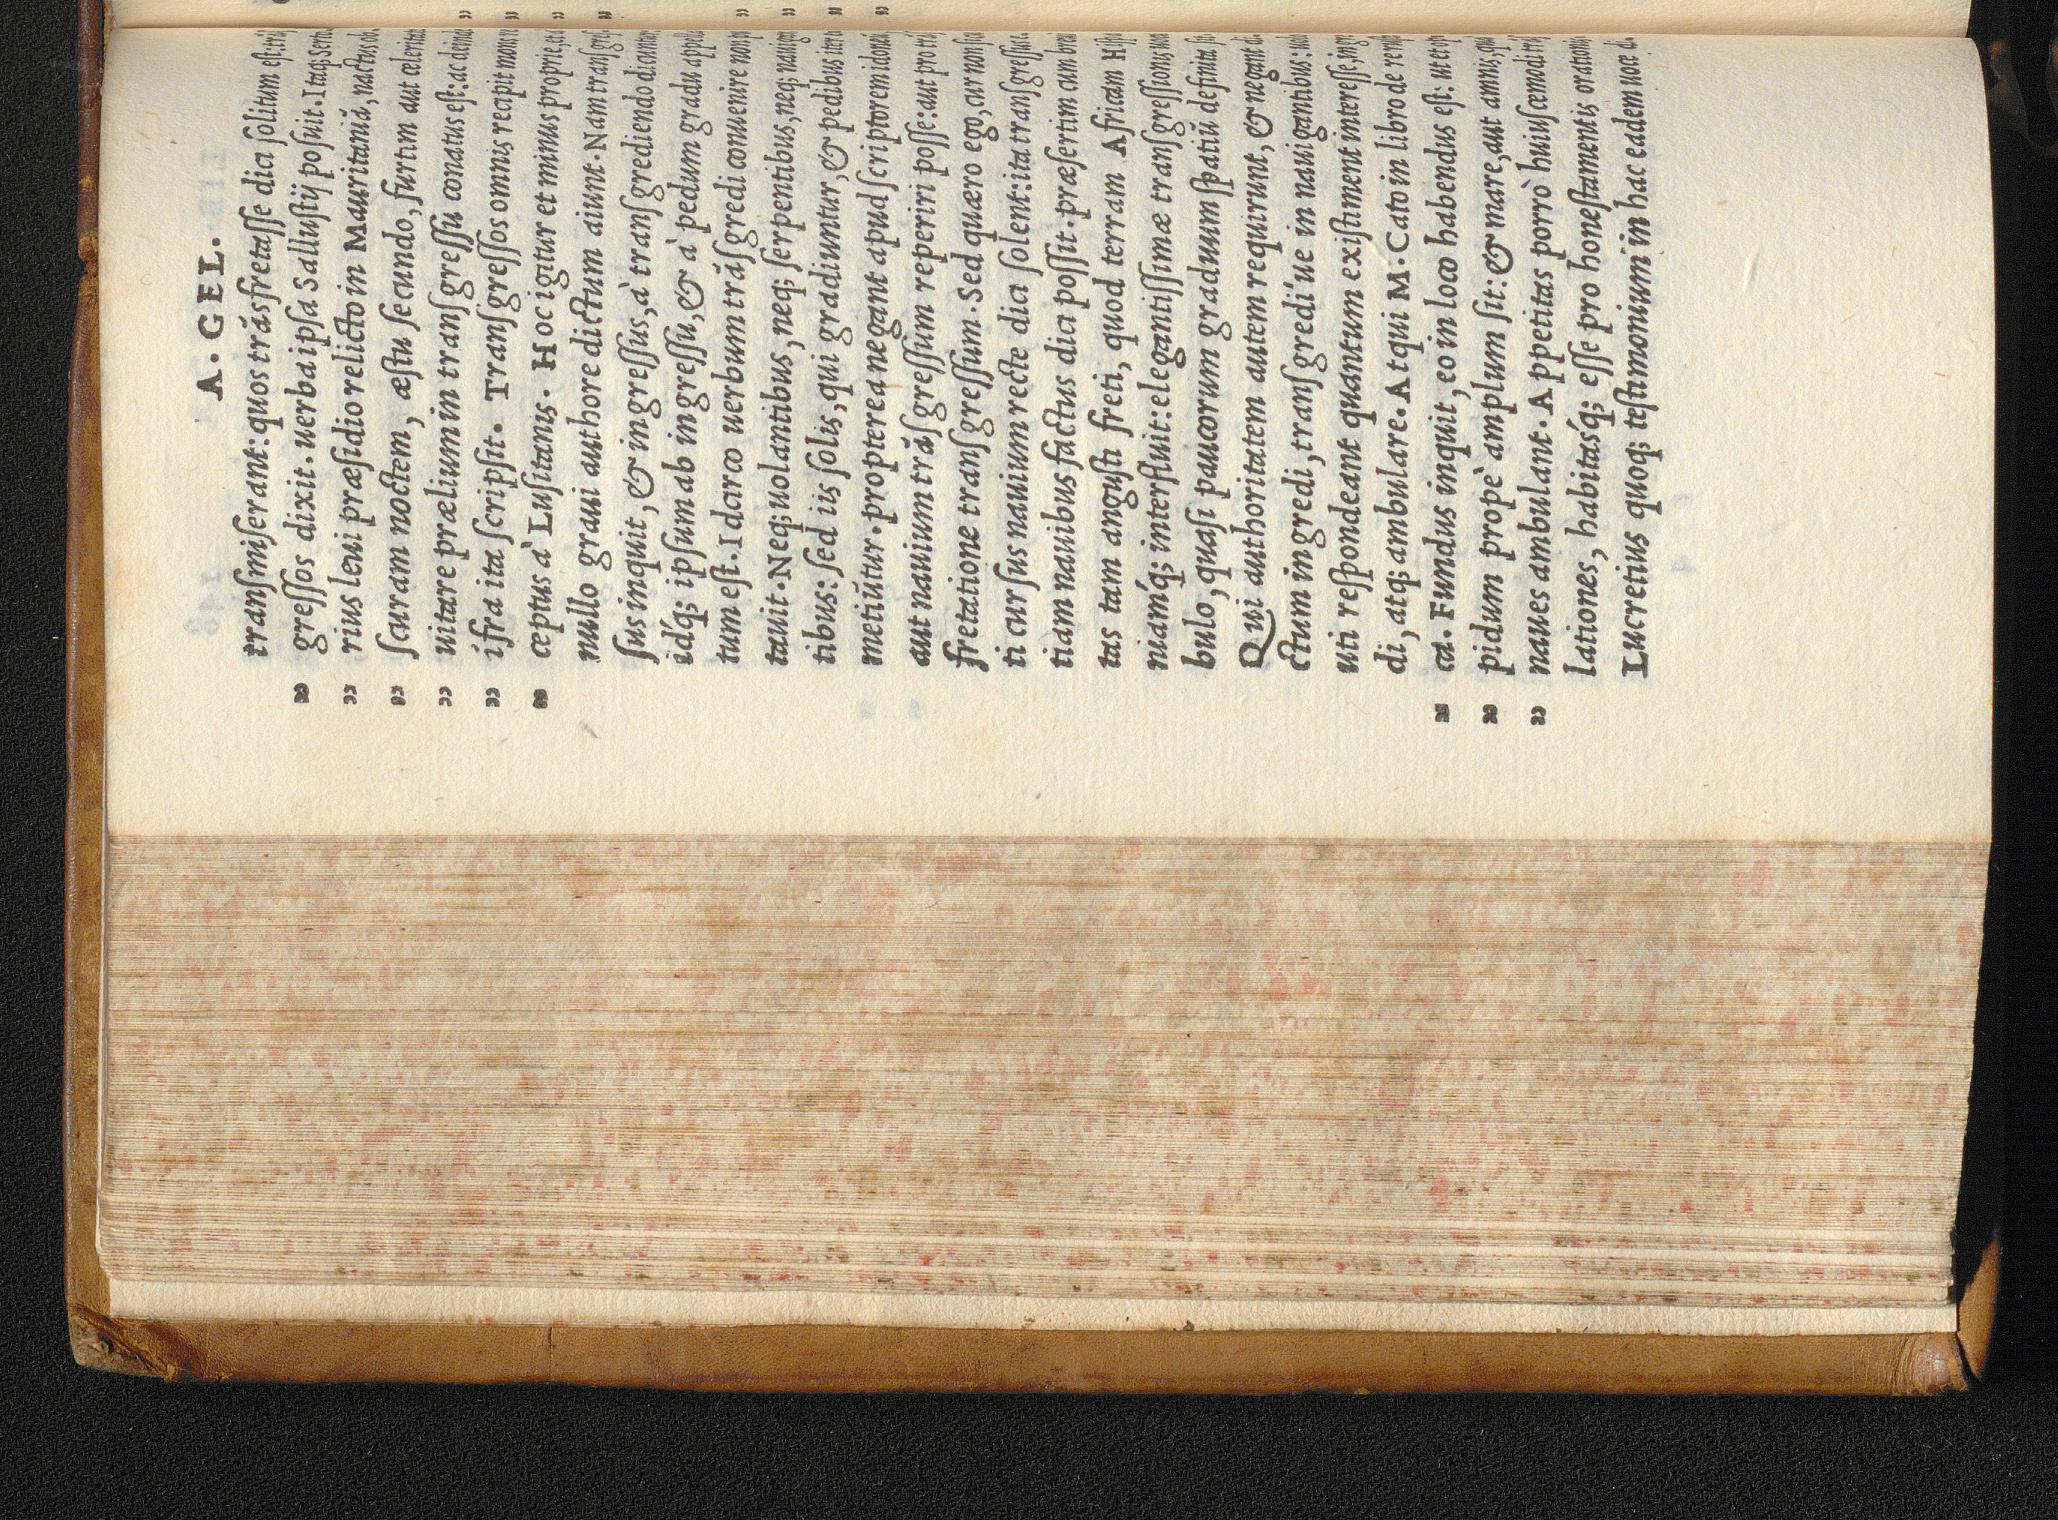 A. GEL.
tranſmiſerant: quos trãsfretaſſe dici ſolitum eſt:
" greſſos dixit. uerba ipſa Salluſtij poſuit. Itaq;
" rius leui præſidio relicto in Mauritaniã, nactus
" ſcuram noctem, æſtu ſecundo, furtim aut
" uitare prælium in tranſgreſſu conatus eſt: ac
" ĩfra ita ſcripſit. Tranſgreſſos omnis recipit
" ceptus à Luſitanis. Hoc igitur et minus proprie, et
nullo graui authore dictum aiunt. Nam
ſus inquit, & ingreſſus, à tranſgrediendo
idq́; ipſum ab ingreſſu, & à pedum gradu
tum eſt. Idcirco uerbum trãſgredi conuenire non
tauit. Neq; uolantibus, neq; ſerpentibus, neq;
tibus: ſed iis ſolis, qui gradiuntur, & pedibus
metiũtur. propterea negant apud ſcriptorem
aut nauium trãſgreſſum reperiri poſſe: aut pro
fretatione tranſgreſſum. Sed quæro ego, cur non
ti curſus nauium recte dici ſolent: ita
tiam nauibus factus dici poſſit. præſertim cum
tas tam anguſti freti, quod terram Africam
niamq́; interfluit: elegantiſſimæ tranſgreſſionis
bulo, quaſi paucorum graduum ſpatiũ
Qui authoritatem autem requirunt, & negant
ctum ingredi, tranſgredi'ue in nauigantibus:
uti reſpondeant quantum exiſtiment intereſſe,
di, atq; ambulare. Atqui M. Cato in libro de re
" ca. Fundus inquit, eo in loco habendus eſt: ut
" pidum propè amplum ſit: & mare, aut amnis,
" naues ambulant. Appetitas porrò huiuſcemodi
lationes, habitasq́; eſſe pro honeſtamentis
Lucretius quoq; teſtimonium in hac eadem uoce